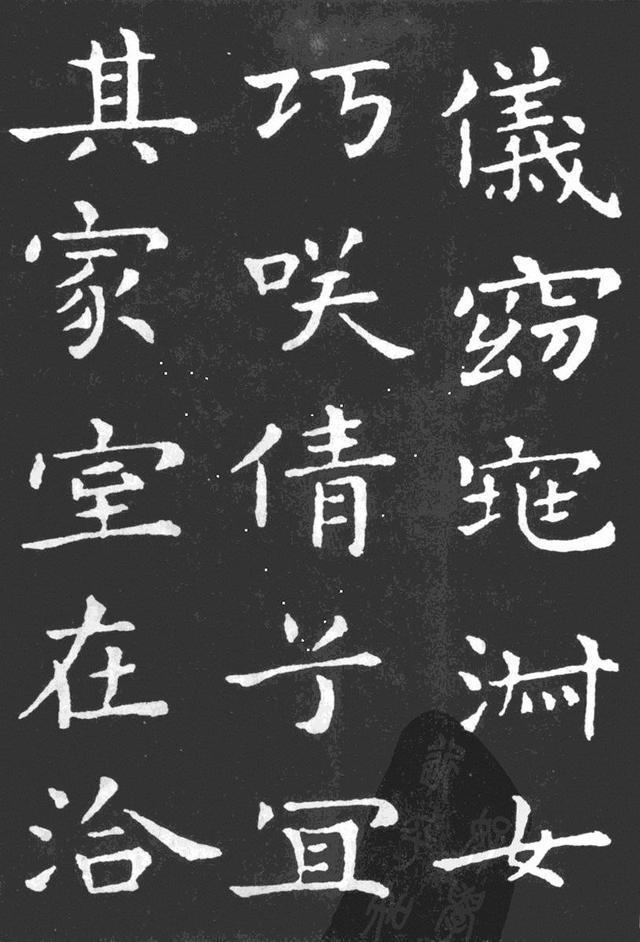 儀窈窕淑女
巧咲倩兮冝
其家室在洽